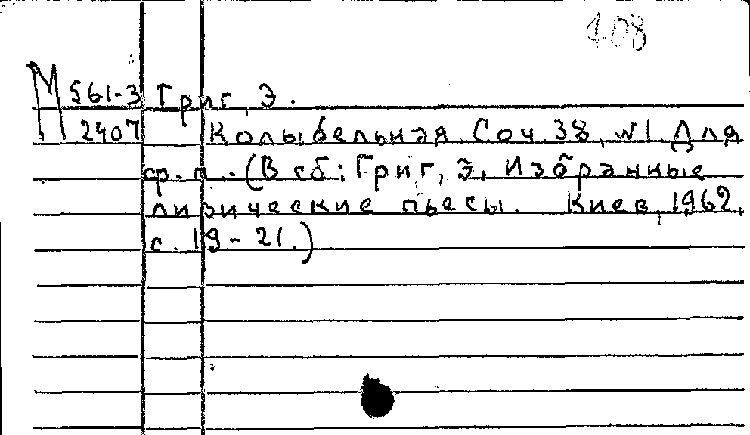 108
М 561-3 Григ, Э.
2407 Колыбельная. Соч. 38, №1. Для
ф.-п.. (В сб: Григ, Э. Избранные
лирические пьесы. Киев, 1962,
с. 19-21.)